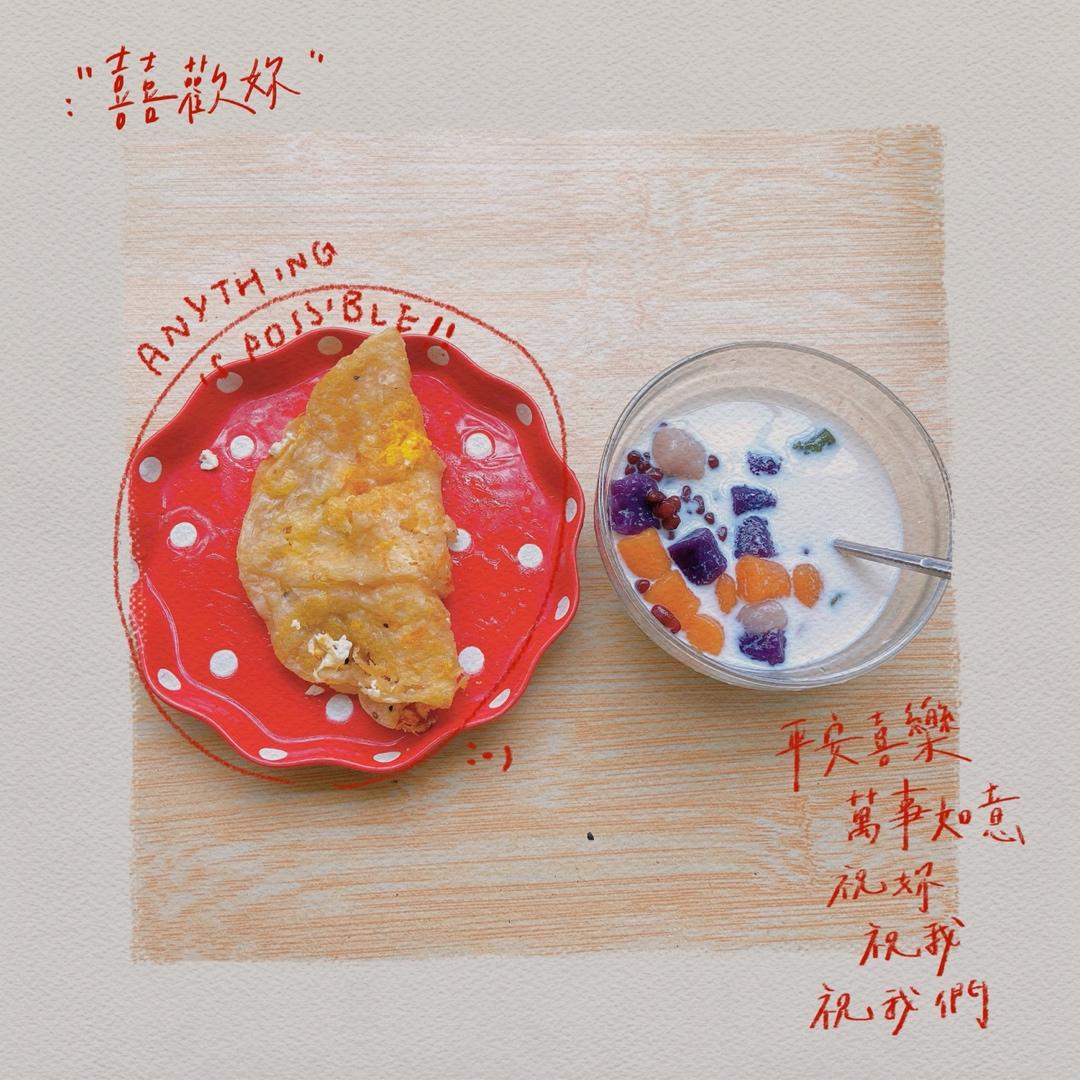 :"囍歡妳"
ANYTHING
IS POSSIBLE!!
:-)
平安喜樂
萬事如意
祝妳
祝我
祝我們